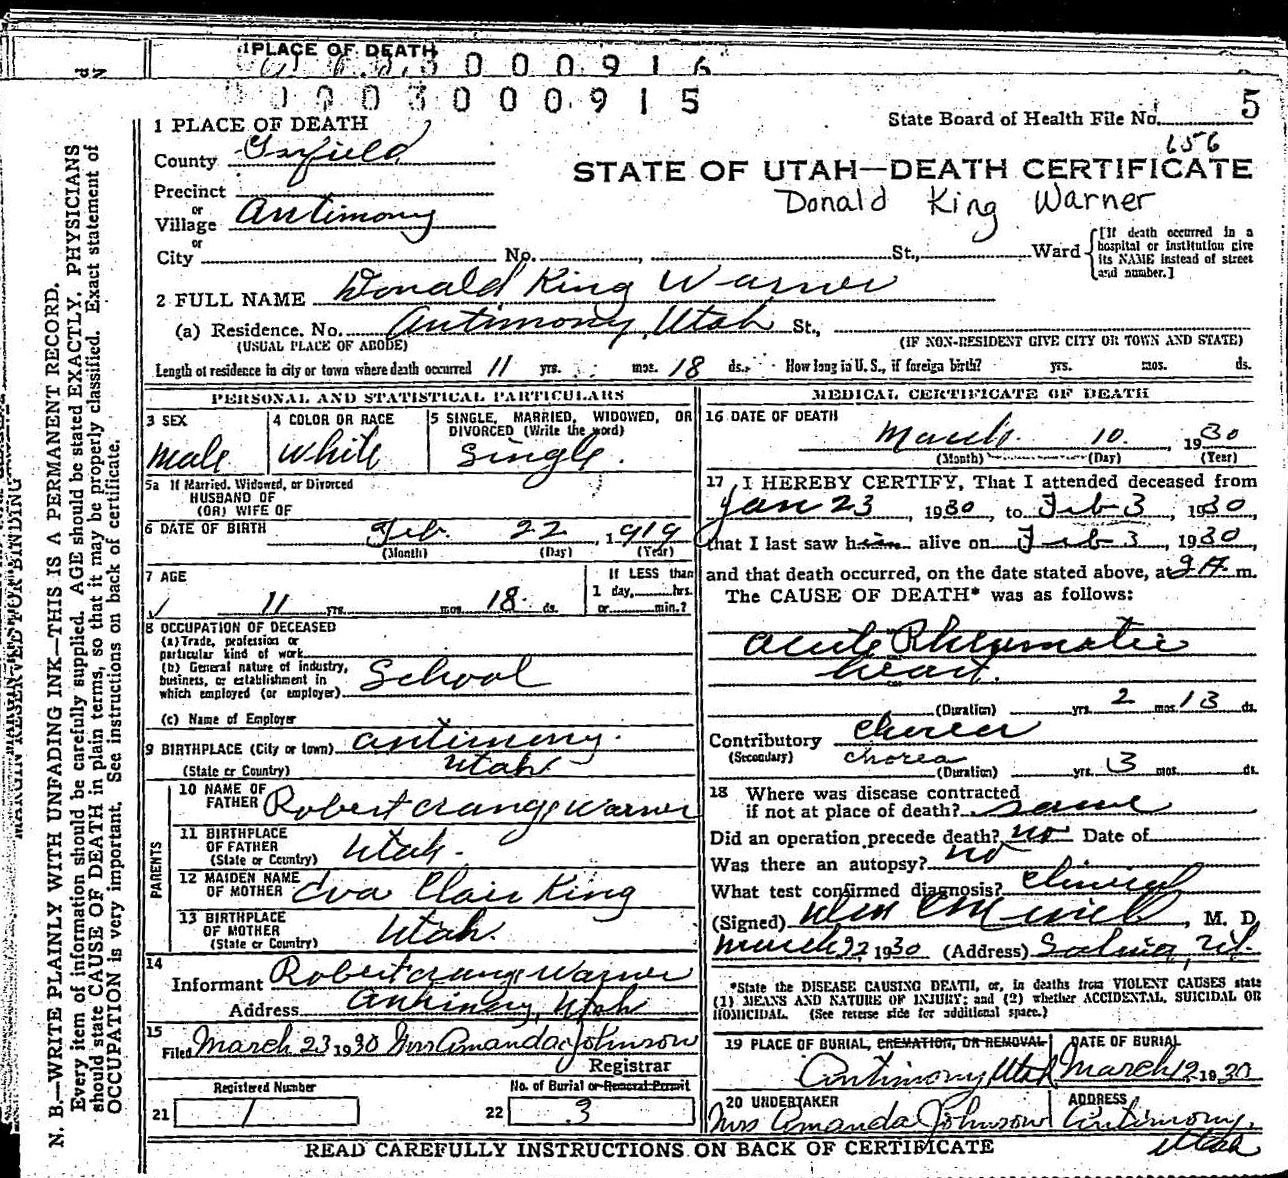 1 PLACE OF DEATH
0 0 0 9 1 6
0 0 0 3 0 0 0 9 1 5
5
1 PLACE OF DEATH
State Board of Health File No.
656
County Garfield
STATE OF UTAH—DEATH CERTIFICATE
Precinct
Donald King Warner
or
Village Antimony
or
City No. , St., Ward
[If death occurred in a hospital or institution give its NAME instead of street and number.]
2 FULL NAME Donald King Warner
(a) Residence. No. Antimony, Utah St.,
(USUAL PLACE OF ABODE) (IF NON-RESIDENT GIVE CITY OR TOWN AND STATE)
Length of residence in city or town where death occurred 11 yrs. mos. 18 ds. How long in U. S., if foreign birth? yrs. mos. ds.
PERSONAL AND STATISTICAL PARTICULARS
3 SEX
male
4 COLOR OR RACE
white
5 SINGLE, MARRIED, WIDOWED, OR
DIVORCED (Write the word)
Single.
5a If Married, Widowed, or Divorced
HUSBAND OF
(OR) WIFE OF
6 DATE OF BIRTH Feb. 22, 1919
(Month) (Day) (Year)
7 AGE
11 yrs. mos. 18 ds.
If LESS than
1 day, hrs.
or min.?
8 OCCUPATION OF DECEASED
(a) Trade, profession or
particular kind of work
(b) General nature of industry,
business, or establishment in
which employed (or employer) School
(c) Name of Employer
9 BIRTHPLACE (City or town) Antimony.
(State or Country) Utah.
PARENTS
10 NAME OF
FATHER Robert Crange Warner
11 BIRTHPLACE
OF FATHER
(State or Country) Utah.
12 MAIDEN NAME
OF MOTHER Eva Clair King
13 BIRTHPLACE
OF MOTHER
(State or Country) Utah.
14
Informant Robert Crange Warner
Address Antimony, Utah
15
Filed March 23 1930 Mrs Amanda Johnson
Registrar
Registered Number
21 1
No. of Burial or Removal Permit
22 3
MEDICAL CERTIFICATE OF DEATH
16 DATE OF DEATH
March 10. 1930
(Month) (Day) (Year)
17 I HEREBY CERTIFY, That I attended deceased from
Jan 23, 1930, to Feb 3, 1930,
that I last saw him alive on Feb 3, 1930,
and that death occurred, on the date stated above, at 9 A m.
The CAUSE OF DEATH* was as follows:
Acute Rheumatic
heart.
(Duration) yrs. 2 mos 13 ds.
Contributory Chorea
(Secondary) chorea
(Duration) yrs. 3 mos. ds.
18 Where was disease contracted
if not at place of death? same
Did an operation precede death? no Date of
Was there an autopsy? no
What test confirmed diagnosis? Clinical
(Signed) , M. D.
March 22 1930 (Address) Salina, Ut.
*State the DISEASE CAUSING DEATH, or, in deaths from VIOLENT CAUSES state
(1) MEANS AND NATURE OF INJURY; and (2) whether ACCIDENTAL, SUICIDAL OR
HOMICIDAL. (See reverse side for additional space.)
19 PLACE OF BURIAL, CREMATION, OR REMOVAL
Antimony Utah
DATE OF BURIAL
March 12 1930
20 UNDERTAKER
Mrs Amanda Johnson
ADDRESS
Antimony,
Utah
READ CAREFULLY INSTRUCTIONS ON BACK OF CERTIFICATE
MARGIN RESERVED FOR BINDING
N. B.—WRITE PLAINLY WITH UNFADING INK—THIS IS A PERMANENT RECORD.
Every item of information should be carefully supplied. AGE should be stated EXACTLY. PHYSICIANS
should state CAUSE OF DEATH in plain terms, so that it may be properly classified. Exact statement of
OCCUPATION is very important. See instructions on back of certificate.